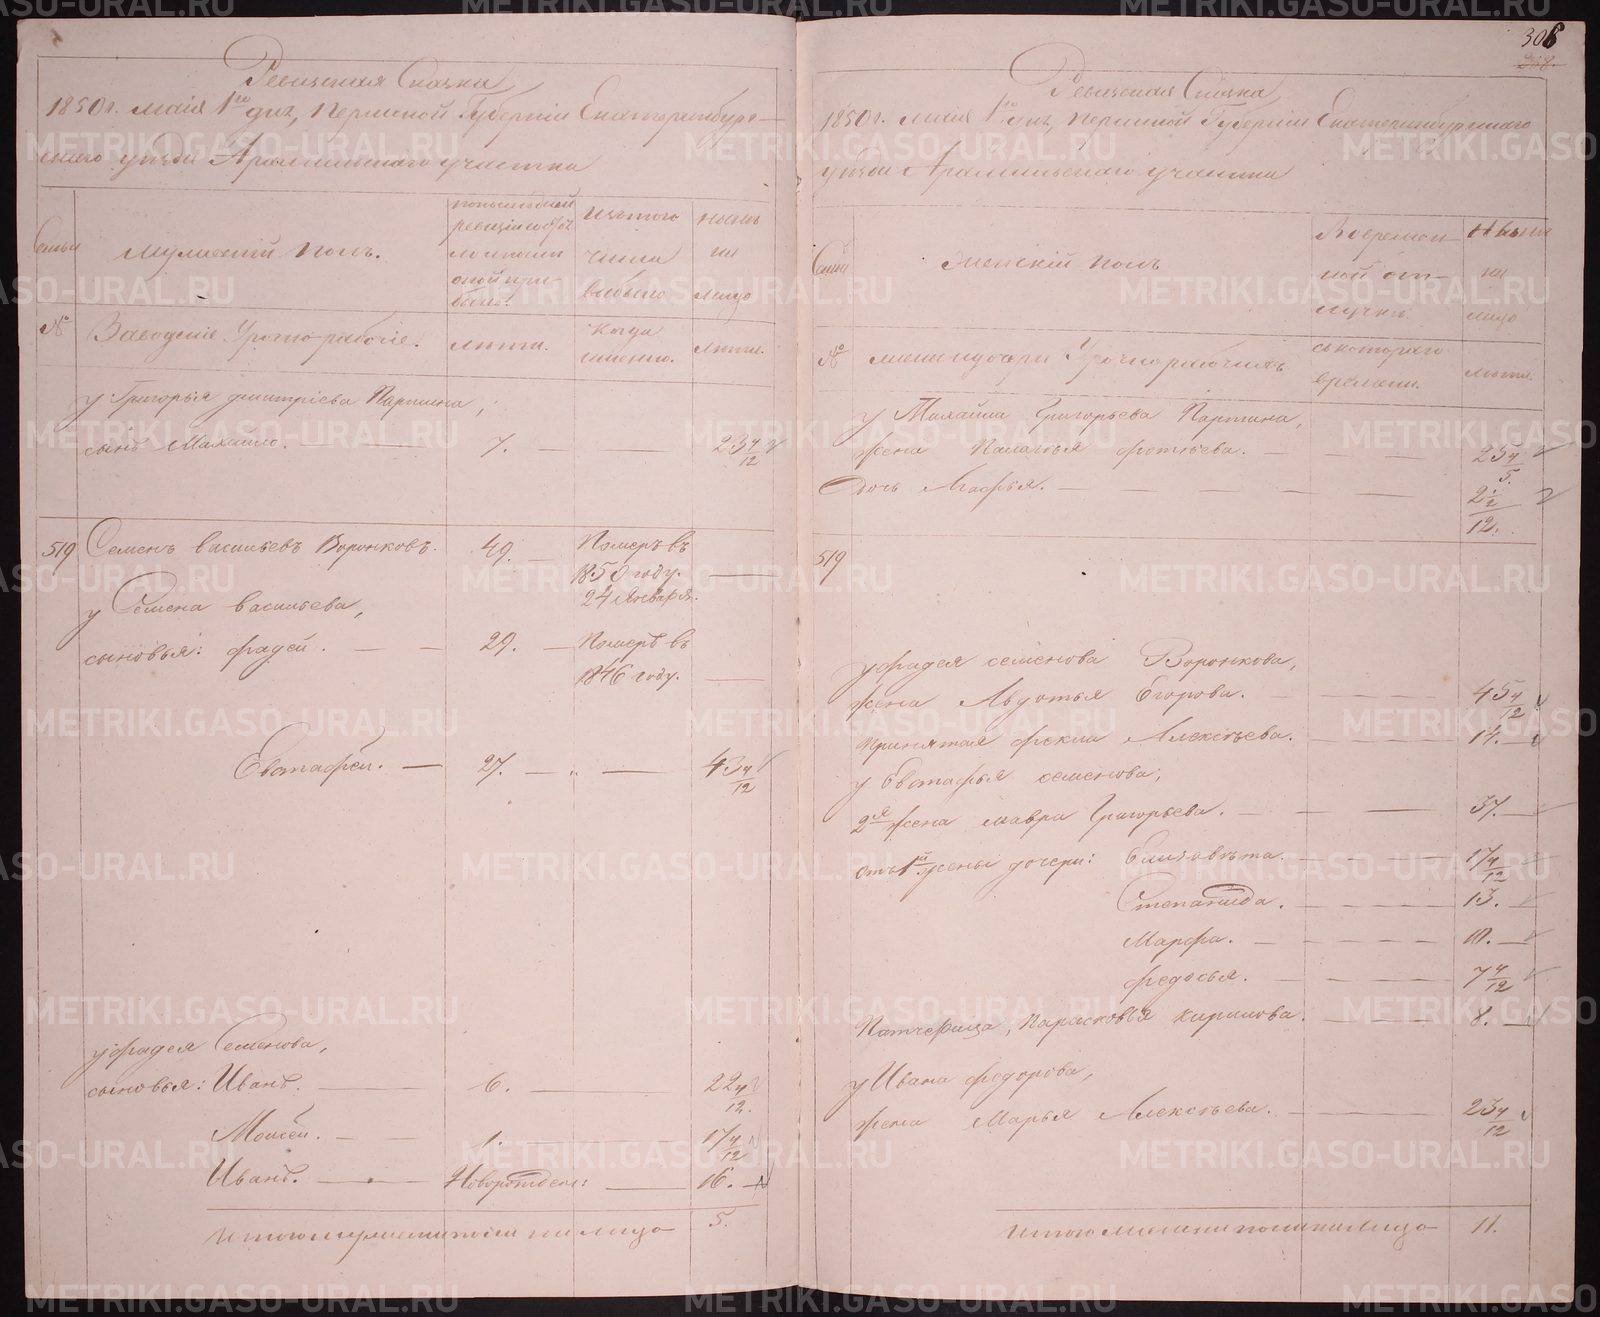 Ревизская Сказка
1850 г. маія 1го дня, Пермской Губерніи Екатеринбург-
скаго уѣзда Арамильскаго участка
Семьи
Мужескій полъ.
по последней
ревизіи
изъ того
числа
выбыло
нынѣ
на
лицо
№
Заводскіе Урочно рабочіе.
лѣта.
когда
именно.
лѣта.
у Григорья дмитріева Паршина,
сынъ Михайло. 7. 23 4/12
519 Семенъ васильевъ Воронковъ. 49. Померъ въ
1850 году.
24 Января.
у Семена васильева,
сыновья: фадей. 29. Померъ въ
1846 году.
Евстафей. 27. 43 4/12
у фадея Семенова,
сыновья: Иванъ. 6. 22 4/12.
Моисей. 1. 17 4/12
Иванъ. Новорожден: 16.
Итого мужеска пола на лицо 5.
306
Ревизская Сказка
1850 г. маія 1го дня, Пермской Губерніи Екатеринбургскаго
уѣзда Арамильскаго участка
Семьи
Женскій полъ
Во времен-
ной от-
лучкѣ.
Нынѣ
на
лицо
№
жены и дочери Урочнорабочихъ
съ котораго
времени.
лѣта.
у Михайла Григорьева Паршина,
жена Палагья фотіева. 25 4/
Дочь Агафья. 2 1/2/12.
519
у фадея семенова Воронкова,
жена Авдотья Егорова. 45 4/12
Принятая фекла Алексѣева. 14.
у Евстафья семенова,
2я жена мавра Григорьева. 37.
отъ 1й жены дочери: Елизавѣта. 17 4/12
Степанида. 13.
Марфа. 10.
федосья. 7 4/12
Патчерица, Парасковья кирилова. 8.
у Ивана федорова,
жена Марья Алексѣева. 23 4/12
Итого женска пола на лицо 11.
METRIKI.GASO-URAL.RU